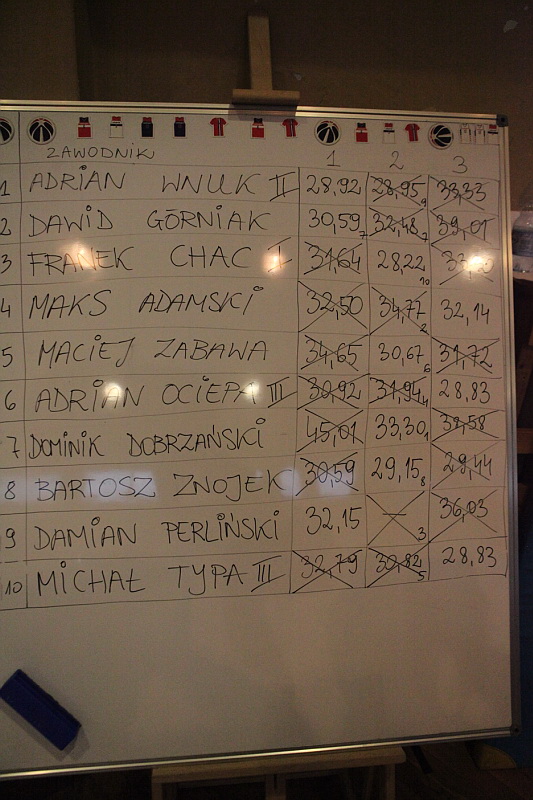 ZAWODNIK 1 2 3
1 ADRIAN WNUK II 28,92 28,95 9 33,33
2 DAWID GÓRNIAK 30,59 32,48 7 39,01
3 FRANEK CHAC I 31,64 28,22 10
4 MAKS ADAMSKI 32,50 34,77 2 32,14
5 MACIEJ ZABAWA 34,65 30,67 6 31,72
6 ADRIAN OCIEPA III 30,92 31,94 4 28,83
7 DOMINIK DOBRZAŃSKI 45,01 33,30 1 38,58
8 BARTOSZ ZNOJEK 30,59 29,15 8 29,44
9 DAMIAN PERLIŃSKI 32,15 — 3 36,03
10 MICHAŁ TYPA III 32,79 30,82 5 28,83